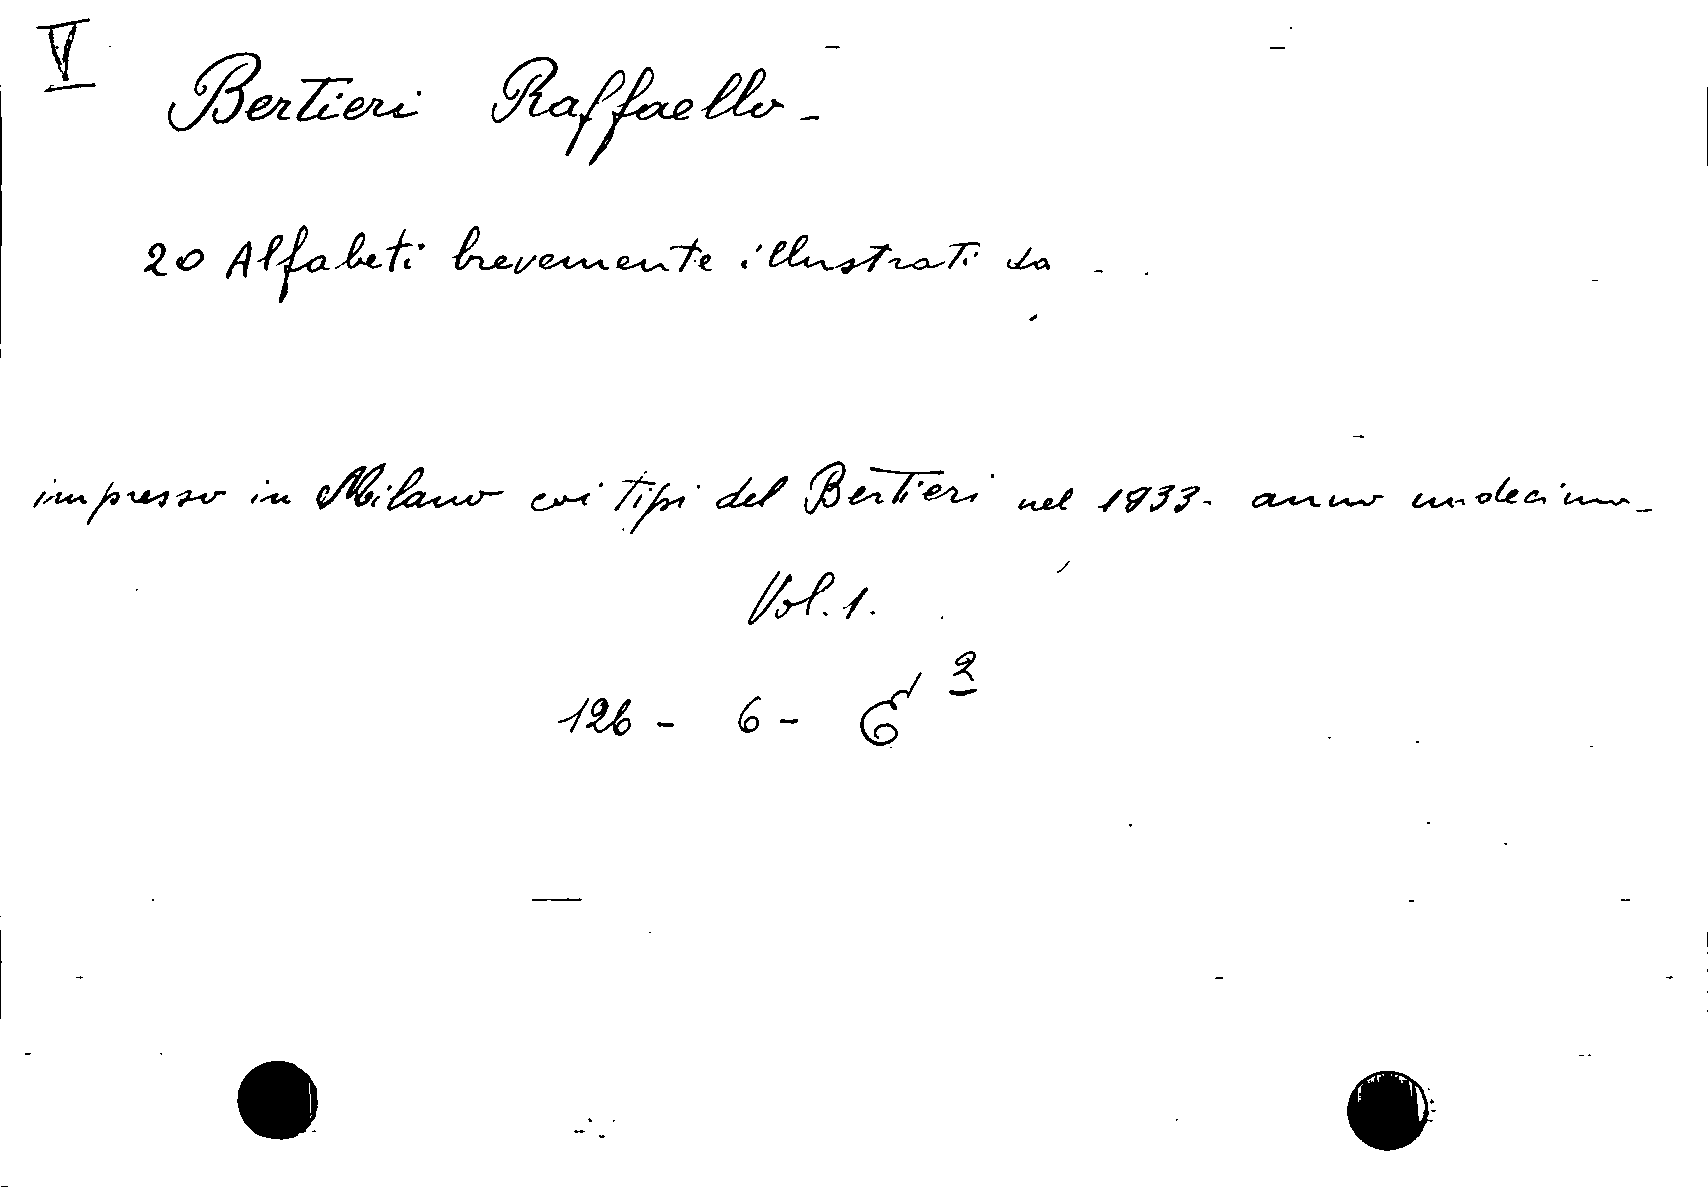 V
Bertieri Raffaello -
20 Alfabeti brevemente illustrati da - .
impresso in Milano coi tipi del Bertieri nel 1933 - anno undecimo -
Vol. 1.
126 - 6 - E 2